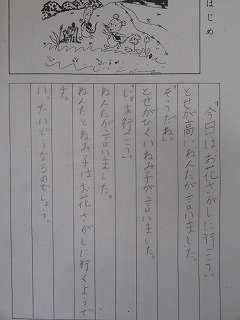 はじめ
「今日はお花さがしに行こう。」
とせが高いねん太が言いました。
「そうだね。」
とせがひくいねみ子が言いました。
「じゃあ行こう。」
ねん太が言いました。
ねん太とねみ子はお花さがしに行くようです。
いったいどうなるのでしょう。